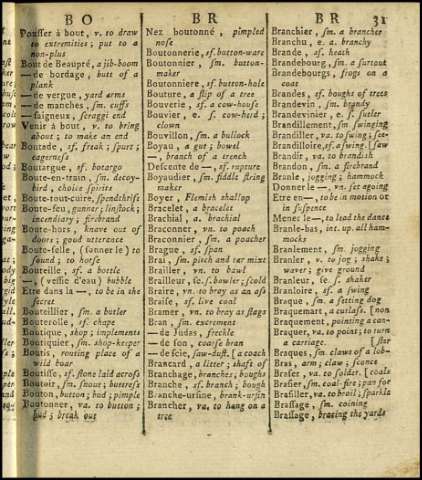 B O
Pousser à bout, v. to draw
to extremities; put to a
non-plus
Bout de Beaupré, a jib-boom
— de bordage, butt of a
plank
— de vergue, yard arms
— de manches, sm. cuffs
— saigneux, scraggi end
Venir à bout, v. to bring
about; to make an end
Boutade, sf. freak; spurt;
eagerness
Boutargue, sf. botargo
Boute-en-train, sm. decoy-
bird, choice spirits
Boute-tout-cuire, spendthrift
Boute-feu, gunner; linstock;
incendiary; firebrand
Boute-hors, knave out of
doors; good utterance
Boute-selle, (sonner le) to
sound; to horse
Bouteille, sf. a bottle
—, (vessie d'eau) bubble
Etre dans la —, to be in the
secret
Bouteillier, sm. a butler
Bouterolle, sf. chape
Boutique, shop; implements
Boutiquier, sm. shop-keeper
Boutis, routing place of a
wild boar
Boutisse, sf. stone laid across
Boutoir, sm. snout; buteress
Bouton, button; bud; pimple
Boutonner, va. to button;
bud; break out
B R
Nez boutonné, pimpled
nose
Boutonnerie, sf. button-ware
Boutonnier, sm. button-
maker
Boutonniere, sf. button-hole
Bouture, a slip of a tree
Bouverie, sf. a cow-house
Bouvier, e. sf. cow-herd;
clown
Bouvillon, sm. a bullock
Boyau, a gut; bowel
—, branch of a trench
Descente de —, sf. rupture
Boyaudier, sm. fiddle string
maker
Boyer, Flemish shallop
Bracelet, a bracelet
Brachial, a. brachial
Braconner, vn. to poach
Braconnier, sm. a poacher
Brague, sf. span
Brai, sm. pitch and tar mixt
Brailler, vn. to bawl
Brailleur, se. f. bowler; scold
Braire, vn. to bray as an ass
Braise, sf. live coal
Bramer, vn. to bray as stags
Bran, sm. excrement
— de Judas, freckle
— de son, coarse bran
— de scie, saw-dust. [a coach
Brancard, a litter; shaft of
Branchage, branches; boughs
Branche, sf. branch; bough
Branche-ursine, brank-ursin
Brancher, va. to hang on a
tree
B R
31
Branchier, sm. a brancher
Branchu, e. a. branchy
Brande, sf. heath
Brandebourg, sm. a surtout
Brandebourgs, frogs on a
coat
Brandes, sf. boughs of trees
Brandevin, sm. brandy
Brandevinier, e. f. sutler
Brandillement, sm. swinging
Brandiller, va. to swing; see-
Brandilloire, sf. a swing. [saw
Brandir, va. to brandish
Brandon, sm. a firebrand
Branle, jogging; hammock
Donner le —, vn. set agoing
Etre en —, to be in motion or
in suspence
Mener le —, to lead the dance
Branle-bas, int. up. all ham-
mocks
Branlement, sm. jogging
Branler, v. to jog; shake;
waver; give ground
Branleur, se. f. shaker
Branloire, sf. a swing
Braque, sm. a setting dog
Braquemart, a cutlass. [non
Braquement, pointing a can-
Braquer, va. to point; to turn
a carriage. [ster
Braques, sm. claws of a lob-
Bras, arm; claw; sconce
Braser, va. to solder. [coals
Brasier, sm. coal-fire; pan for
Brasiller, va. to broil; sparkle
Brassage, sm. coining
Brassage, bracing the yards